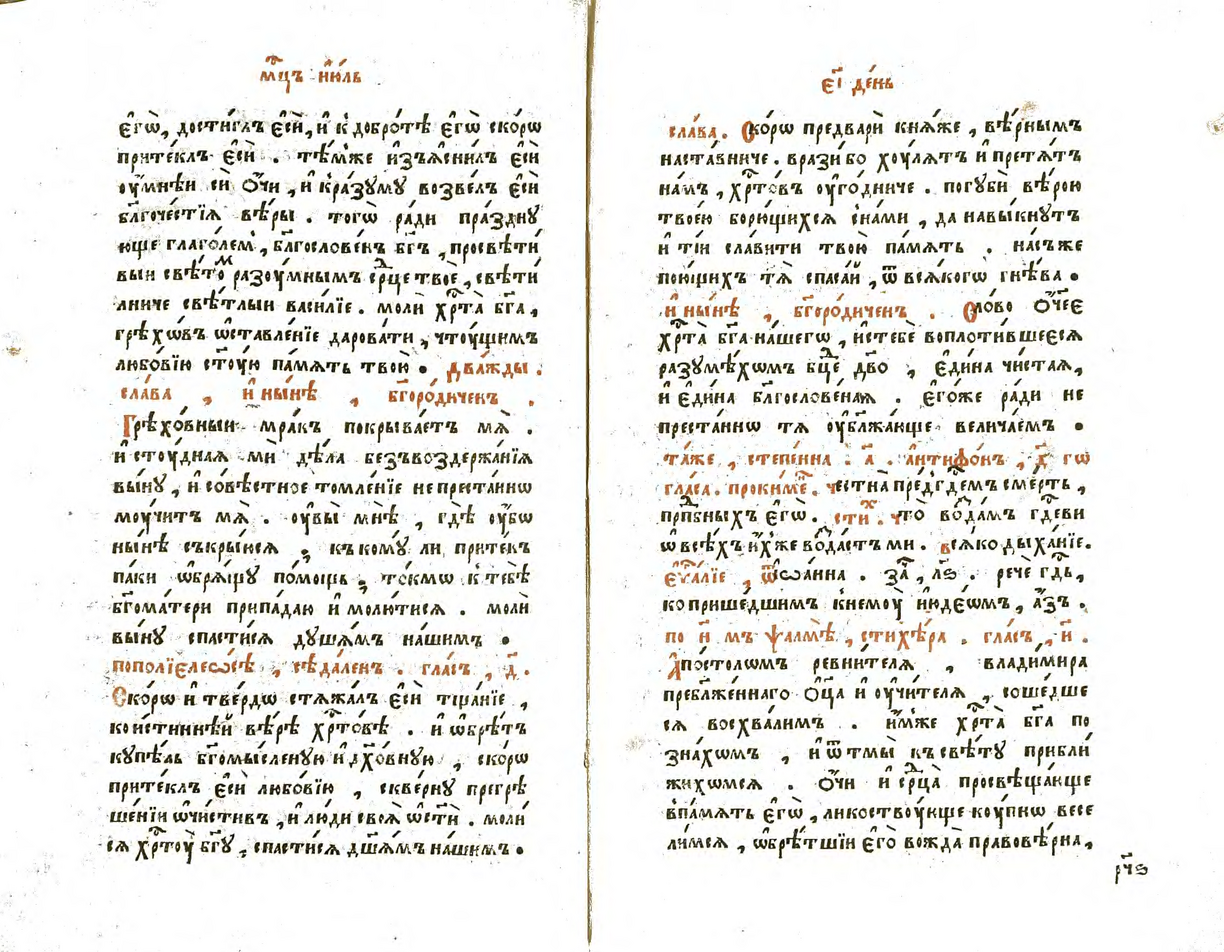 мц҃ъ ию́ль
є҆гѡ̀, дости́глъ є҆сѝ, и҆ к̾ добро́тѣ є҆гѡ̀ ско́рѡ
прите́клъ є҆сѝ . тѣ́мже и҆з̾ѧсни́лъ є҆сѝ
ѹ҆́мнѣи си ѻ҆́чи , и҆ к̾ра́зуму возве́лъ є҆сѝ
бл҃гоче́стїѧ вѣ́ры . тогѡ̀ ра́ди пра́здну
юще глаго́лем̾, бл҃гослове́нъ бг҃ъ , просвѣти́
выи свѣ́томъ разѹ́мнымъ ср҃дце твоѐ , свѣти́
лниче свѣ́тлыи васи́лїе . молѝ хр҃та̀ бг҃а ,
грѣхѡ́въ ѡ҆ставле́нїе дарова́ти , чтѹ́щимъ
любо́вїю ст҃ѹю па́мѧть твою̀ . два́жды .
сла́ва , и҆ ны́нѣ , бг҃оро́диченъ .
Грѣхо́вныи мра́къ покрыва́етъ мѧ̀ .
и҆ стѹ́днаѧ ми дѣ́ла безъвоздержа́нїѧ
вы́ну , и҆ со́вѣстное томле́нїе непреста́ннѡ
мѹ́читъ мѧ̀ . ѹ҆вы̀ мнѣ̀ , гдѣ̀ ѹ҆́бѡ
ны́нѣ съкры́юсѧ , къ кому́ ли прите́къ
па́ки ѡ҆брѧ́щу по́мощь , то́кмѡ к̾ тебѣ̀
бг҃ома́тери припа́даю и҆ молю́тисѧ . молѝ
вы́ну спасти́сѧ душа́мъ на́шимъ .
по полїелеѡ́сѣ , сѣда́ленъ . гла́съ , д҃ .
Ско́рѡ и҆ тве́рдѡ стѧжа́лъ є҆сѝ тща́нїе ,
ко и҆́стиннѣй вѣ́рѣ хр҃то́вѣ . и҆ ѡ҆брѣ́тъ
купѣ́ль бг҃омы́сленую и҆ д҃хо́вную , ско́рѡ
прите́клъ є҆сѝ любо́вїю , скве́рну прегрѣ
ше́нїи ѡ҆чи́стивъ , и҆ лю́ди своѧ̀ ѡ҆ст҃ѝ . моли́
сѧ хр҃тѹ̀ бг҃у , спасти́сѧ дш҃а́мъ на́шимъ .
є҃і де́нь
сла́ва . Ско́рѡ предварѝ кнѧ́же , вѣ́рнымъ
наста́вниче . врази́ бо хѹ́лѧтъ и҆ претѧ́тъ
на́мъ , хр҃то́въ ѹ҆го́дниче . погубѝ вѣ́рою
твое́ю борю́щихсѧ с̾на́ми , да навы́кнутъ
и҆ ті́и сла́вити твою̀ па́мѧть . на́съ же
пою́щихъ тѧ̀ спаса́й , ѿ всѧ́когѡ гнѣ́ва .
и҆ ны́нѣ , бг҃оро́диченъ . Сло́во ѻ҆́ч҃ее
хр҃та̀ бг҃а на́шегѡ , и҆стебѐ воплоти́вшеесѧ
разумѣ́хѡмъ бц҃е дв҃о , є҆ди́на чи́стаѧ ,
и҆ є҆ди́на бл҃гослове́наѧ . є҆го́же ра́ди не
преста́ннѡ тѧ ѹ҆блажа́юще велича́емъ .
та́же , степе́нна . а҃ . антифо́нъ , д҃ гѡ
гла́са . прокиме́н . честна̀ пред̾гд҃емъ сме́рть ,
прп҃бныхъ є҆гѡ̀ . сти́х . что̀ возда́мъ гд҃еви
ѡ҆ всѣ́хъ и҆́хже возда́стъ ми . всѧ́ко дыха́нїе .
є҆ѵⷢ҇а́лїе , ѿ і҆ѡа́нна . за҃ , л҃ѕ . речѐ гд҃ь ,
ко прише́дшимъ к̾немѹ̀ и҆юде́ѡмъ , а҆́зъ .
по н҃ мъ ѱалмѣ̀ , стихѣ́ра . гла́съ , и҃ .
А҆по́столѡмъ ревни́телѧ , влади́мира
пребл҃же́ннаго ѻ҆ц҃а̀ и҆ ѹ҆чи́телѧ , соше́дше
сѧ восхва́лимъ . и҆́мже хр҃та̀ бг҃а по
зна́хѡмъ , и҆ ѿ тмы̀ къ свѣ́ту прибли́
жихѡмсѧ . ѻ҆́чи и҆ ср҃дца̀ просвѣща́юще
в̾па́мѧть є҆гѡ̀ , ликоствѹ́юще кѹ́пнѡ весе
ли́мсѧ , ѡ҆брѣ́тшїи є҆го̀ вожда̀ правовѣ́рна ,
рч҃ѕ